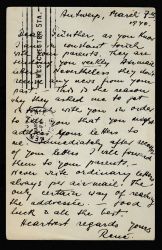 Antwerp, March 7th
1940.
Dear Günther, as you know
I am in constant touch
with your parents, they are
sending you weekly airmail
letters. Nevertheless they
any news from your
part. This is the reason
why they asked me to get
in touch with you in order
to tell you that you might
address your letters to
me. Immediately after
of your letters I will forward
them to your parents.
Never write ordinary letters
always per air mail, the
only certain way of reaching
the addressee. Good
luck & all the best.
Heartiest regards yours
René.
WESTCHESTER STA.